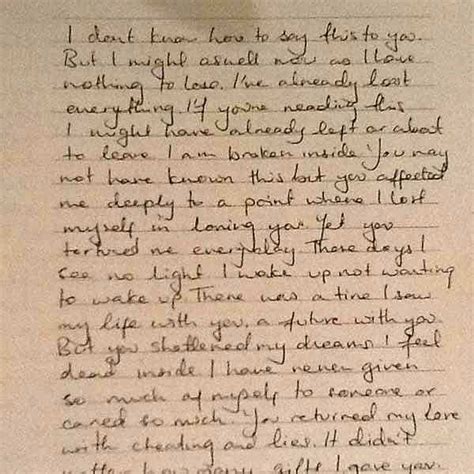 I dont know how to say this to you.
But I might aswell now as I have
nothing to lose. I've already lost
everything. If you're reading this
I might have already left or about
to leave. I am broken inside. You may
not have known this but you affected
me deeply to a point where I lost
myself in loving you. Yet you
tortured me everyday. These days I
see no light I wake up not wanting
to wake up. There was a time I saw
my life with you, a future with you.
But you shattered my dreams. I feel
dead inside. I have never given
so much of myself to someone or
cared so much. You returned my love
with cheating and lies. It didn't
how many gifts I gave you.